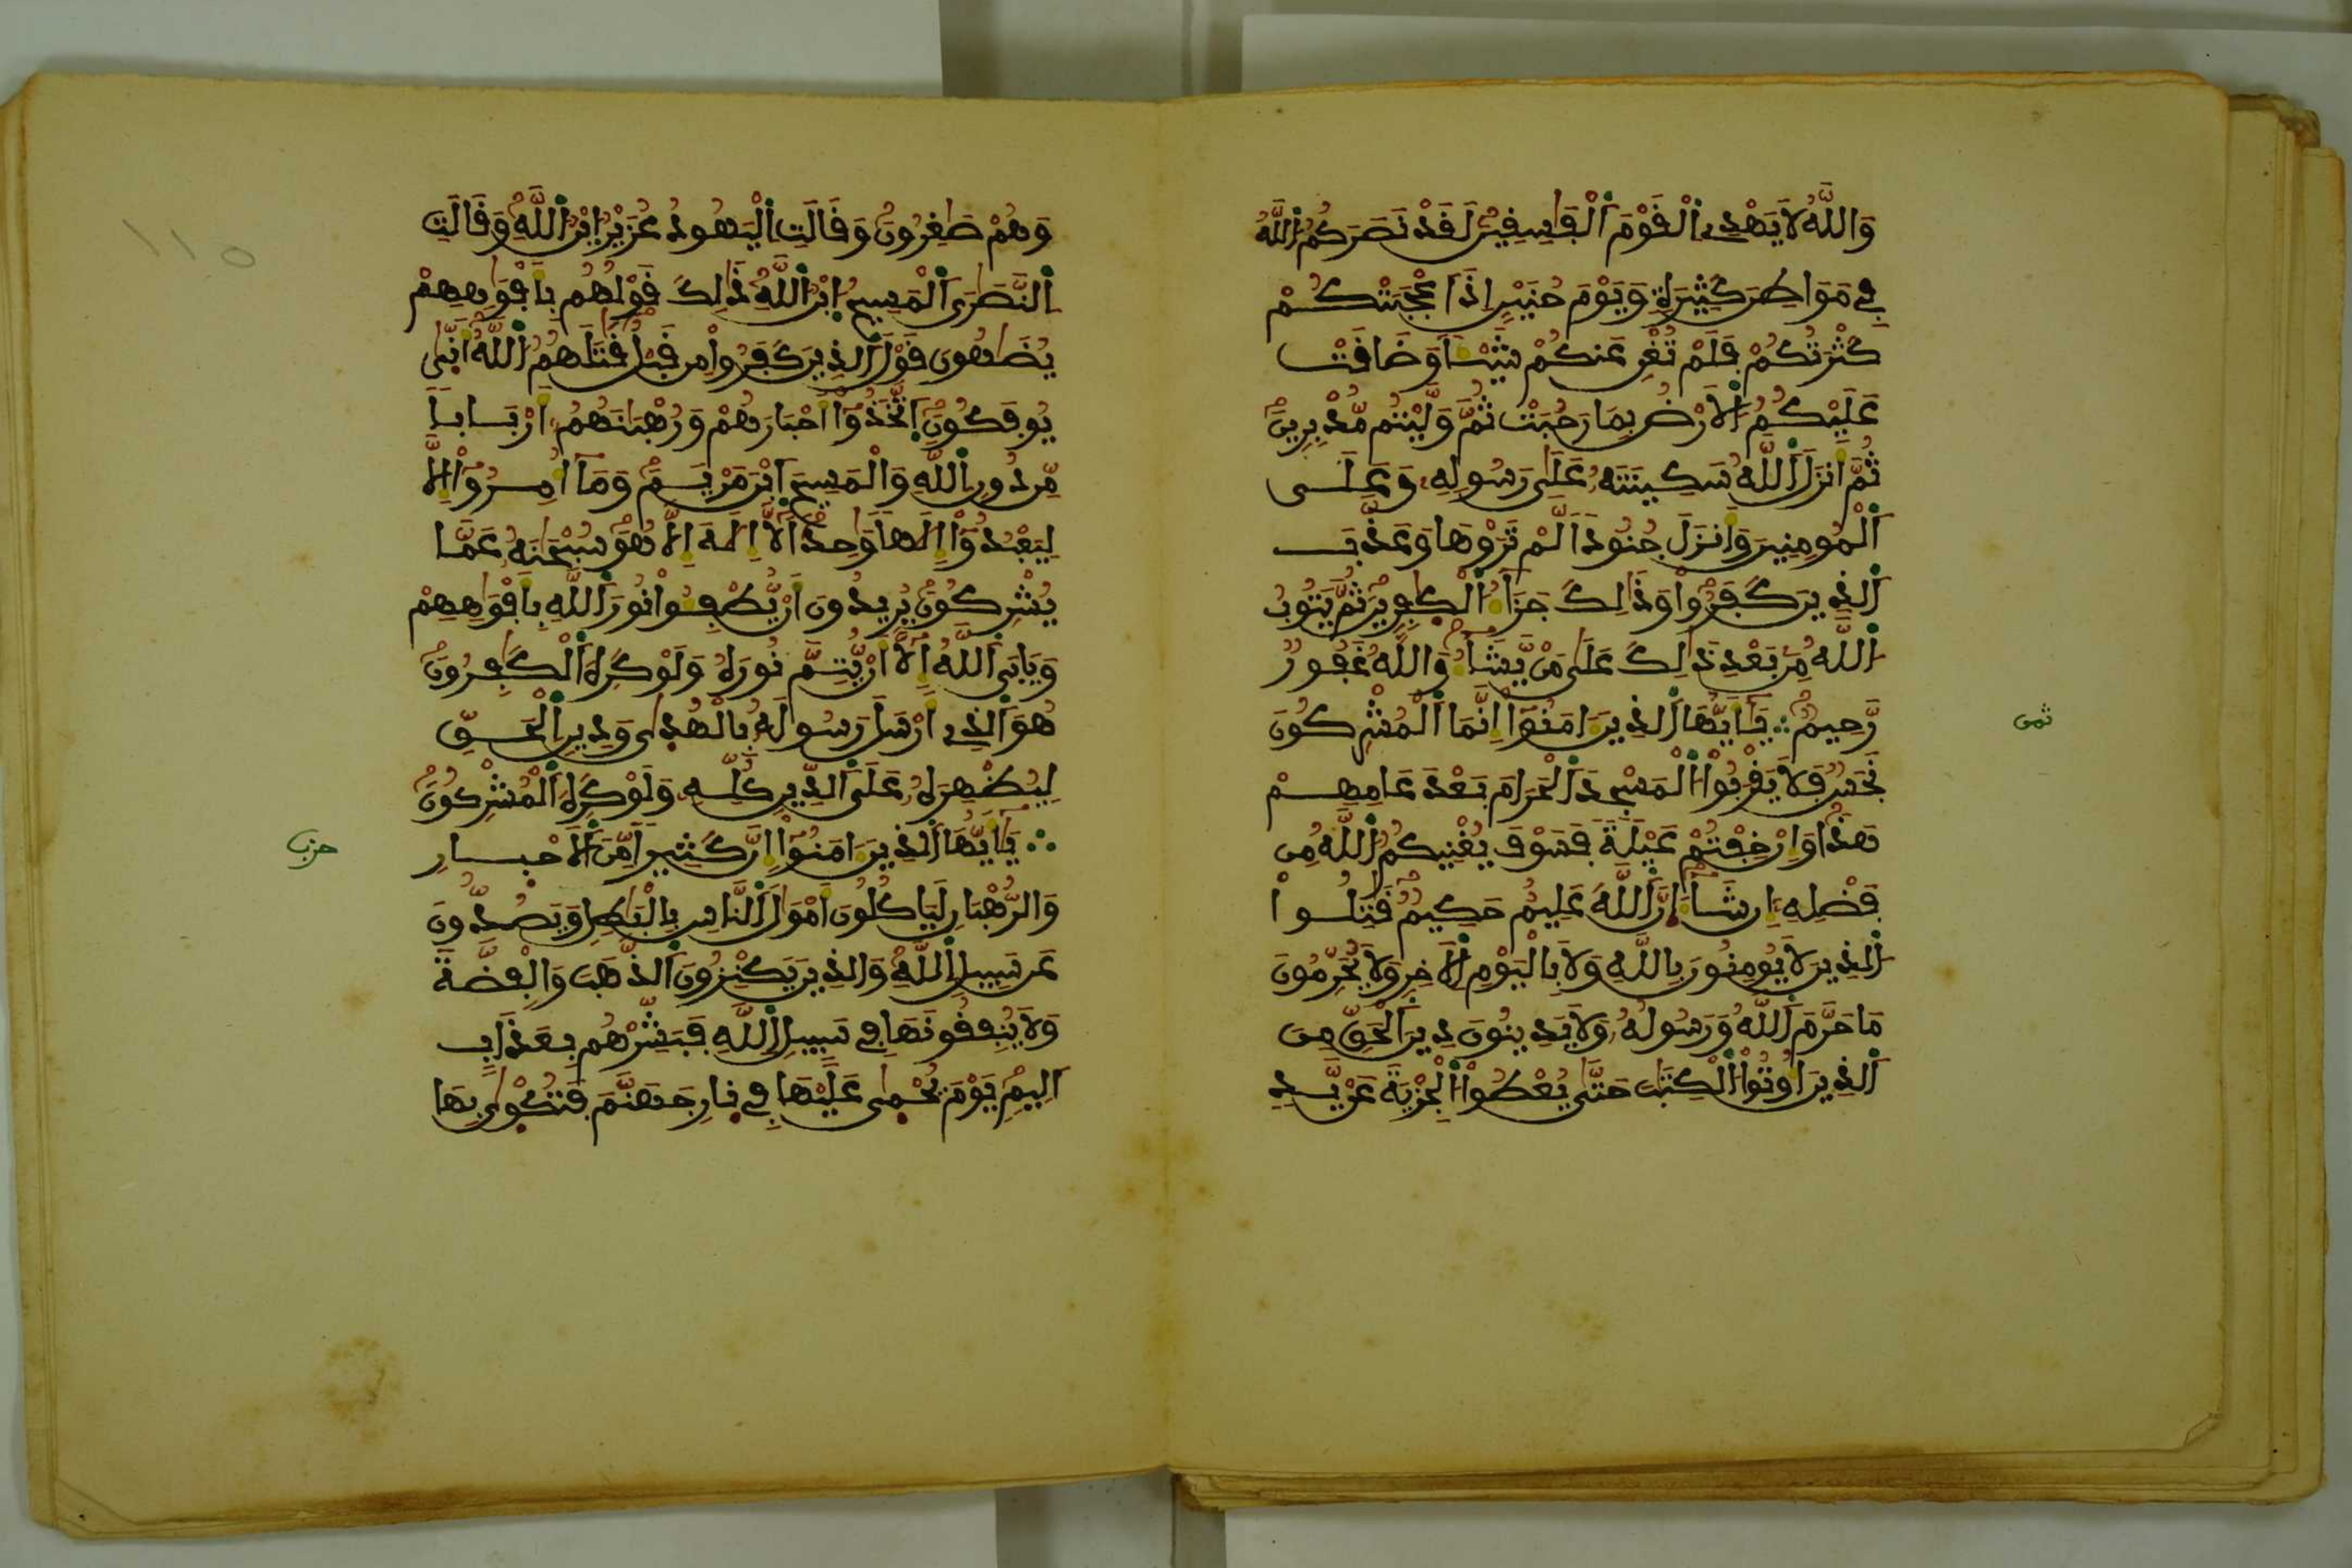 وَاللَّهُ لَا يَهْدِے اِ۬لْقَوْمَ اَ۬لْفَٰسِقِينَ لَقَدْ نَصَرَكُمُ اُ۬للَّهُ
فِے مَوَاطِنَ كَثِيرَةٖ وَيَوْمَ حُنَيْنٍ اِذَ اَعْجَبَتْكُمْ
كَثْرَتُكُمْ فَلَمْ تُغْنِ عَنكُمْ شَيْـٔاٗ وَضَاقَتْ
عَلَيْكُمُ اُ۬لَارْضُ بِمَا رَحُبَتْ ثُمَّ وَلَّيْتُم مُّدْبِرِينَ
ثُمَّ أَنزَلَ اَ۬للَّهُ سَكِينَتَهُۥ عَلَىٰ رَسُولِهِۦ وَعَلَى
اَ۬لْمُومِنِينَ وَأَنزَلَ جُنُوداٗ لَّمْ تَرَوْهَا وَعَذَّبَ
اَ۬لذِينَ كَفَرُواْ وَذَٰلِكَ جَزَآءُ اُ۬لْكٰ۪فِرِينَ ثُمَّ يَتُوبُ
اُ۬للَّهُ مِنۢ بَعْدِ ذَٰلِكَ عَلَىٰ مَنْ يَّشَآءُ وَاللَّهُ غَفُورٞ
رَّحِيمٞ ؞ يَٰٓأَيُّهَا اَ۬لذِينَ ءَامَنُوٓاْ إِنَّمَا اَ۬لْمُشْرِكُونَ
ثمن
نَجَسٞ فَلَا يَقْرَبُواْ اُ۬لْمَسْجِدَ اَ۬لْحَرَامَ بَعْدَ عَامِهِمْ
هَٰذَا وَإِنْ خِفْتُمْ عَيْلَةٗ فَسَوْفَ يُغْنِيكُمُ اُ۬للَّهُ مِن
فَضْلِهِۦٓ إِن شَآءَ اِنَّ اَ۬للَّهَ عَلِيمٌ حَكِيمٞ قَٰتِلُواْ
اُ۬لذِينَ لَا يُومِنُونَ بِاللَّهِ وَلَا بِالْيَوْمِ اِ۬لَاخِرِ وَلَا يُحَرِّمُونَ
مَا حَرَّمَ اَ۬للَّهُ وَرَسُولُهُۥ وَلَا يَدِينُونَ دِينَ اَ۬لْحَقِّ مِنَ
اَ۬لذِينَ أُوتُواْ اُ۬لْكِتَٰبَ حَتَّىٰ يُعْطُواْ اُ۬لْجِزْيَةَ عَنْ يَّدٖ
١١٥
وَهُمْ صَٰغِرُونَ وَقَالَتِ اِ۬لْيَهُودُ عُزَيْرُ اُ۪بْنُ اُ۬للَّهِ وَقَالَتِ
اِ۬لنَّصَٰرَى اَ۬لْمَسِيحُ اُ۪بْنُ اُ۬للَّهِ ذَٰلِكَ قَوْلُهُم بِأَفْوَٰهِهِمْ
يُضَٰهُونَ قَوْلَ اَ۬لذِينَ كَفَرُواْ مِن قَبْلُ قَٰتَلَهُمُ اُ۬للَّهُ أَنّ۪ىٰ
يُوفَكُونَ اَ۪تَّخَذُوٓاْ أَحْبَارَهُمْ وَرُهْبَٰنَهُمُۥٓ أَرْبَاباٗ
مِّن دُونِ اِ۬للَّهِ وَالْمَسِيحَ اَ۪بْنَ مَرْيَمَ وَمَآ أُمِرُوٓاْ إِلَّا
لِيَعْبُدُوٓاْ إِلَٰهاٗ وَٰحِداٗ لَّآ إِلَٰهَ إِلَّا هُوَ سُبْحَٰنَهُۥ عَمَّا
يُشْرِكُونَ يُرِيدُونَ أَنْ يُّطْفِـُٔواْ نُورَ اَ۬للَّهِ بِأَفْوَٰهِهِمْ
وَيَابَى اَ۬للَّهُ إِلَّآ أَنْ يُّتِمَّ نُورَهُۥ وَلَوْ كَرِهَ اَ۬لْكَٰفِرُونَ
هُوَ اَ۬لذِےٓ أَرْسَلَ رَسُولَهُۥ بِالْهُد۪ىٰ وَدِينِ اِ۬لْحَقِّ
لِيُظْهِرَهُۥ عَلَى اَ۬لدِّينِ كُلِّهِۦ وَلَوْ كَرِهَ اَ۬لْمُشْرِكُونَ
؞ يَٰٓأَيُّهَا اَ۬لذِينَ ءَامَنُوٓاْ إِنَّ كَثِيراٗ مِّنَ اَ۬لَاحْبَارِ
حزب
وَالرُّهْبَانِ لَيَاكُلُونَ أَمْوَٰلَ اَ۬لنَّاسِ بِالْبَٰطِلِ وَيَصُدُّونَ
عَن سَبِيلِ اِ۬للَّهِ وَالذِينَ يَكْنِزُونَ اَ۬لذَّهَبَ وَالْفِضَّةَ
وَلَا يُنفِقُونَهَا فِے سَبِيلِ اِ۬للَّهِ فَبَشِّرْهُم بِعَذَابٍ
اَلِيمٖ يَوْمَ يُحْم۪ىٰ عَلَيْهَا فِے ن۪ارِ جَهَنَّمَ فَتُكْو۪ىٰ بِهَا